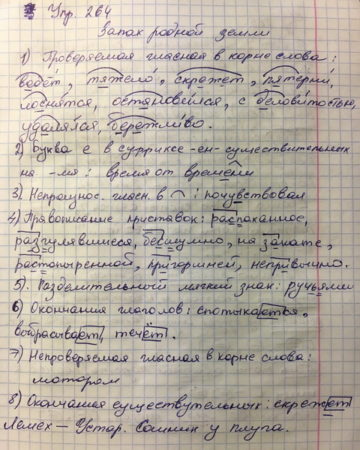 Упр. 264
Запах родной земли
1) Проверяемая гласная в корне слова:
ведёт, тяжело, скрежет, пятерни,
лоснятся, остановился, с деловитостью,
удалялся, бережливо.
2) Буква е в суффиксе -ен- существительных
на -мя: время от времени
3) Непроизнос. гласн. в ⌒: почувствовал
4) Правописание приставок: распаханное,
разгулявшиеся, бесшумно, на закате,
растопыренной, пригоршней, непривычно.
5) Разделительный мягкий знак: ручьями
6) Окончания глаголов: спотыкаются,
выбрасывает, течёт.
7) Непроверяемая гласная в корне слова:
мотором
8) Окончания существительных: скрежет
Лемех – Устар. Сошник у плуга.